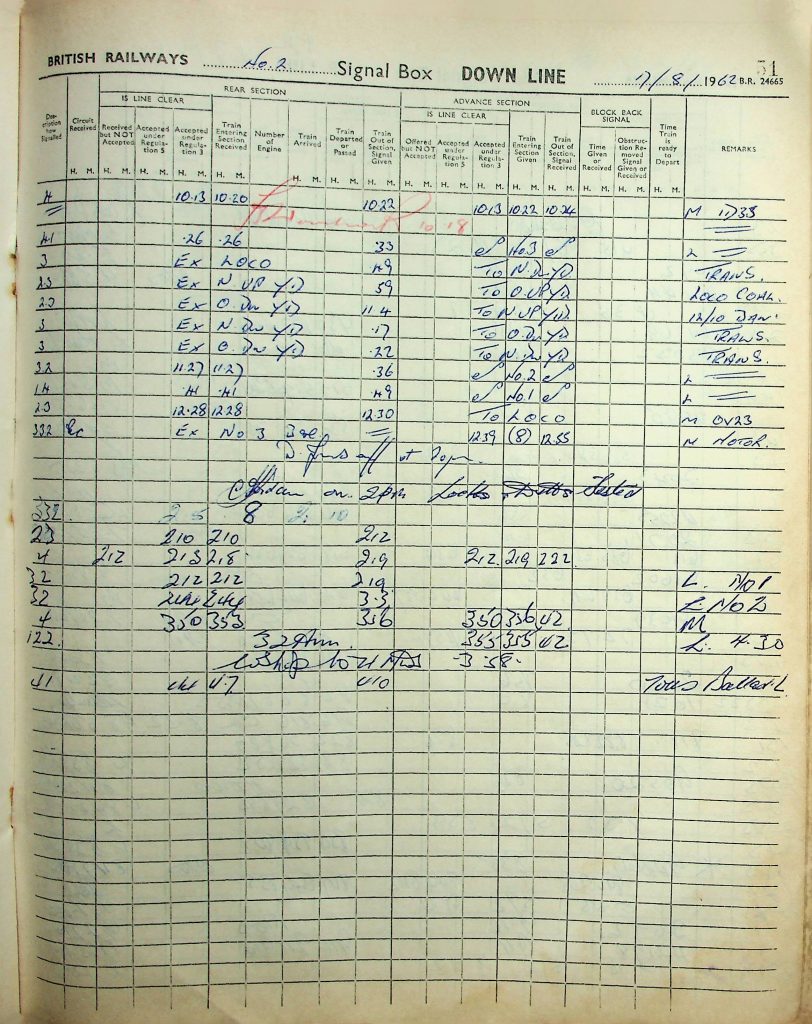 BRITISH RAILWAYS No. 2 Signal Box DOWN LINE 17/8/1962 B.R. 24665 51
REAR SECTION ADVANCE SECTION
IS LINE CLEAR IS LINE CLEAR BLOCK BACK SIGNAL
Description how Signalled Circuit Received Received but NOT Accepted Accepted under Regulation 5 Accepted under Regulation 3 Train Entering Section Received Number of Engine Train Arrived Train Departed or Passed Train Out of Section, Signal Given Offered but NOT Accepted Accepted under Regulation 5 Accepted under Regulation 3 Train Entering Section Given Train Out of Section, Signal Received Time Given or Received Obstruction Removed Signal Given or Received Time Train is ready to Depart REMARKS
H. M. H. M. H. M. H. M. H. M. H. M. H. M. H. M. H. M. H. M. H. M. H. M. H. M. H. M. H. M. H. M.
4 10.13 10.20 10.22 10.13 10.22 10.24 M 1733
10 18
41 .26 .26 .33 No.3 L
3 Ex LOCO 49 To N. Dn YD TRANS.
23 Ex N. UP YD 59 To O. UP YD LOCO COAL.
23 Ex O. Dn YD 11.4 To N UP YD 12/10 DAN
3 Ex N. Dn YD .17 To O. Dn YD TRANS.
3 Ex O. Dn YD .22 To N. Dn YD TRANS.
32 11.27 11.27 .36 No.2 L
14 .41 .41 .49 No.1 L
23 12.28 12.28 12.30 To LOCO M OV23
332 Ex No 3 12.39 (8) 12.55 M MOTOR.
off at 2 pm.
on 2 pm Locks Tested
332 2 5 8 2 10
23 2 10 2 10 2 12
4 2 12 2 13 2 18 2 19 2 12 2 19 2 22
32 2 12 2 12 2 19 L. No 1
32 2 44 2 44 3.3 L No 2
4 3 50 3 53 3 56 3 50 3 56 42
M
122 3 55 3 55 42 L. 4.30
3.58
41 4 4 4.7 4 10